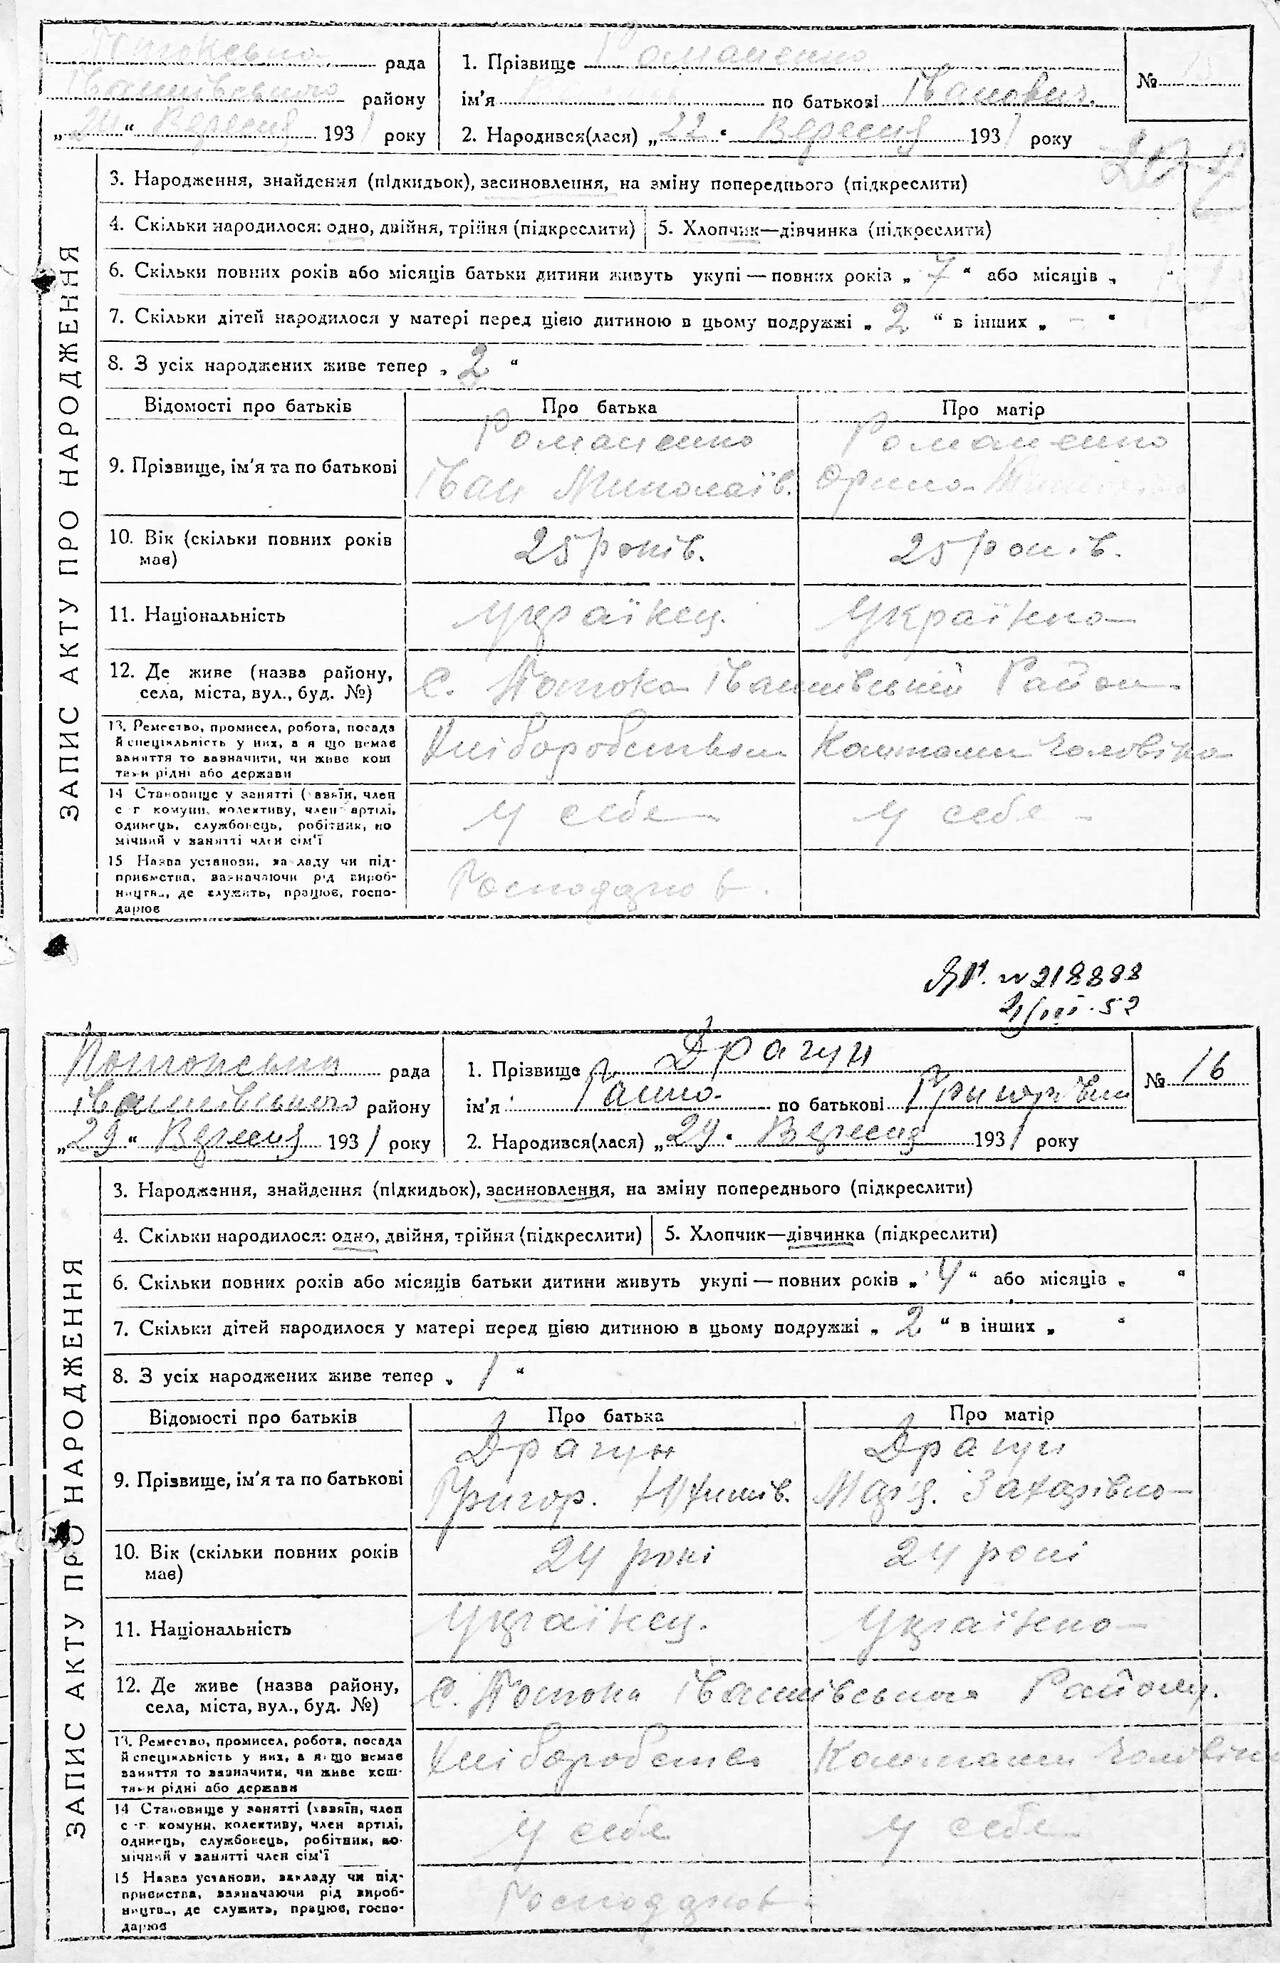 Потокська рада
Івашківського району
„24“ Вересня 1931 року
1. Прізвище Романенко
ім'я по батькові Іванович.
2. Народився(лася) „22“ Вересня 1931 року
№ 15
ЗАПИС АКТУ ПРО НАРОДЖЕННЯ
3. Народження, знайдення (підкидьок), засиновлення, на зміну попереднього (підкреслити)
4. Скільки народилося: одно, двійня, трійня (підкреслити) 5. Хлопчик—дівчинка (підкреслити)
6. Скільки повних років або місяців батьки дитини живуть укупі — повних років „ 7 “ або місяців „ “
7. Скільки дітей народилося у матері перед цією дитиною в цьому подружжі „ 2 “ в інших „ - “
8. З усіх народжених живе тепер „ 2 “
Відомості про батьків Про батька Про матір
9. Прізвище, ім'я та по батькові
Романенко
Іван Миколаїв.
Романенко
10. Вік (скільки повних років має) 25 років. 25 років.
11. Національність Українец. Українка
12. Де живе (назва району, села, міста, вул., буд. №) с. Потока Івашківській Район
13. Ремество, промисел, робота, посада
й спеціяльність у них, а якщо немає
заняття то зазначити, чи живе кош
тами рідні або держави
Хліборобством Коштами Чоловіка
14 Становище у занятті (хазяїн, член
с г комуни, колективу, член артілі,
одинець, службовець, робітник, по
мічний у занятті член сім'ї
У себе У себе
15 Назва установи, закладу чи під-
приємства, зазначаючи рід вироб-
ництва, де служить, працює, госпо-
дарює
Господарюв.
№ 218888
21/III.52
Потокська рада
Івашківського району
„29“ Вересня 1931 року
1. Прізвище Драгун
ім'я Ганна по батькові Григорівни
2. Народився(лася) „24“ Вересня 1931 року
№ 16
ЗАПИС АКТУ ПРО НАРОДЖЕННЯ
3. Народження, знайдення (підкидьок), засиновлення, на зміну попереднього (підкреслити)
4. Скільки народилося: одно, двійня, трійня (підкреслити) 5. Хлопчик—дівчинка (підкреслити)
6. Скільки повних років або місяців батьки дитини живуть укупі — повних років „ 4 “ або місяців „ “
7. Скільки дітей народилося у матері перед цією дитиною в цьому подружжі „ 2 “ в інших „ “
8. З усіх народжених живе тепер „ 1 “
Відомості про батьків Про батька Про матір
9. Прізвище, ім'я та по батькові
Драгун
Григор.
Драгун
Марія. Захарівна
10. Вік (скільки повних років має) 24 рокі 24 рокі
11. Національність Українец. Українка
12. Де живе (назва району, села, міста, вул., буд. №) с. Потока Івашківського Району.
13. Ремество, промисел, робота, посада
й спеціяльність у них, а якщо немає
заняття то зазначити, чи живе кош-
тами рідні або держави
Хліборобство Коштами Чоловіка
14 Становище у занятті (хазяїн, член
с-г комуни, колективу, член артілі,
одинець, службовець, робітник, по-
мічний у занятті член сім'ї
У себе У себе
15 Назва установи, закладу чи під-
приємства, зазначаючи рід вироб-
ництва, де служить, працює, госпо-
дарює
Господарюв